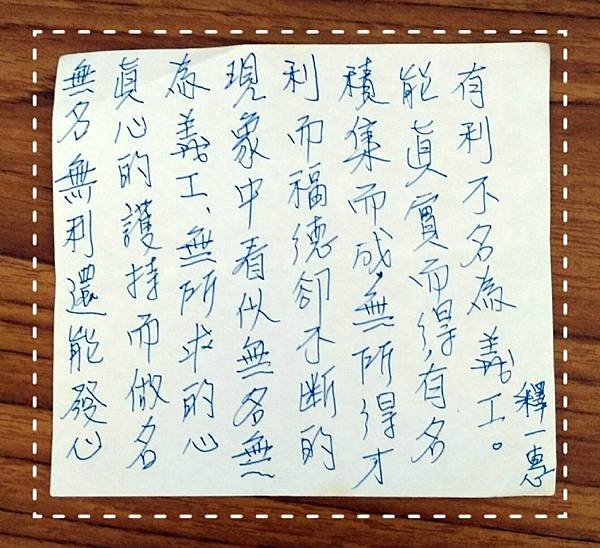 無名無利還能發心
真心的護持而做名
為義工、無所求的心
現象中看似無名無
利而福德卻不斷的
積集而成，無所得才
能真實而得，有名
有利不名為義工。
釋一惠